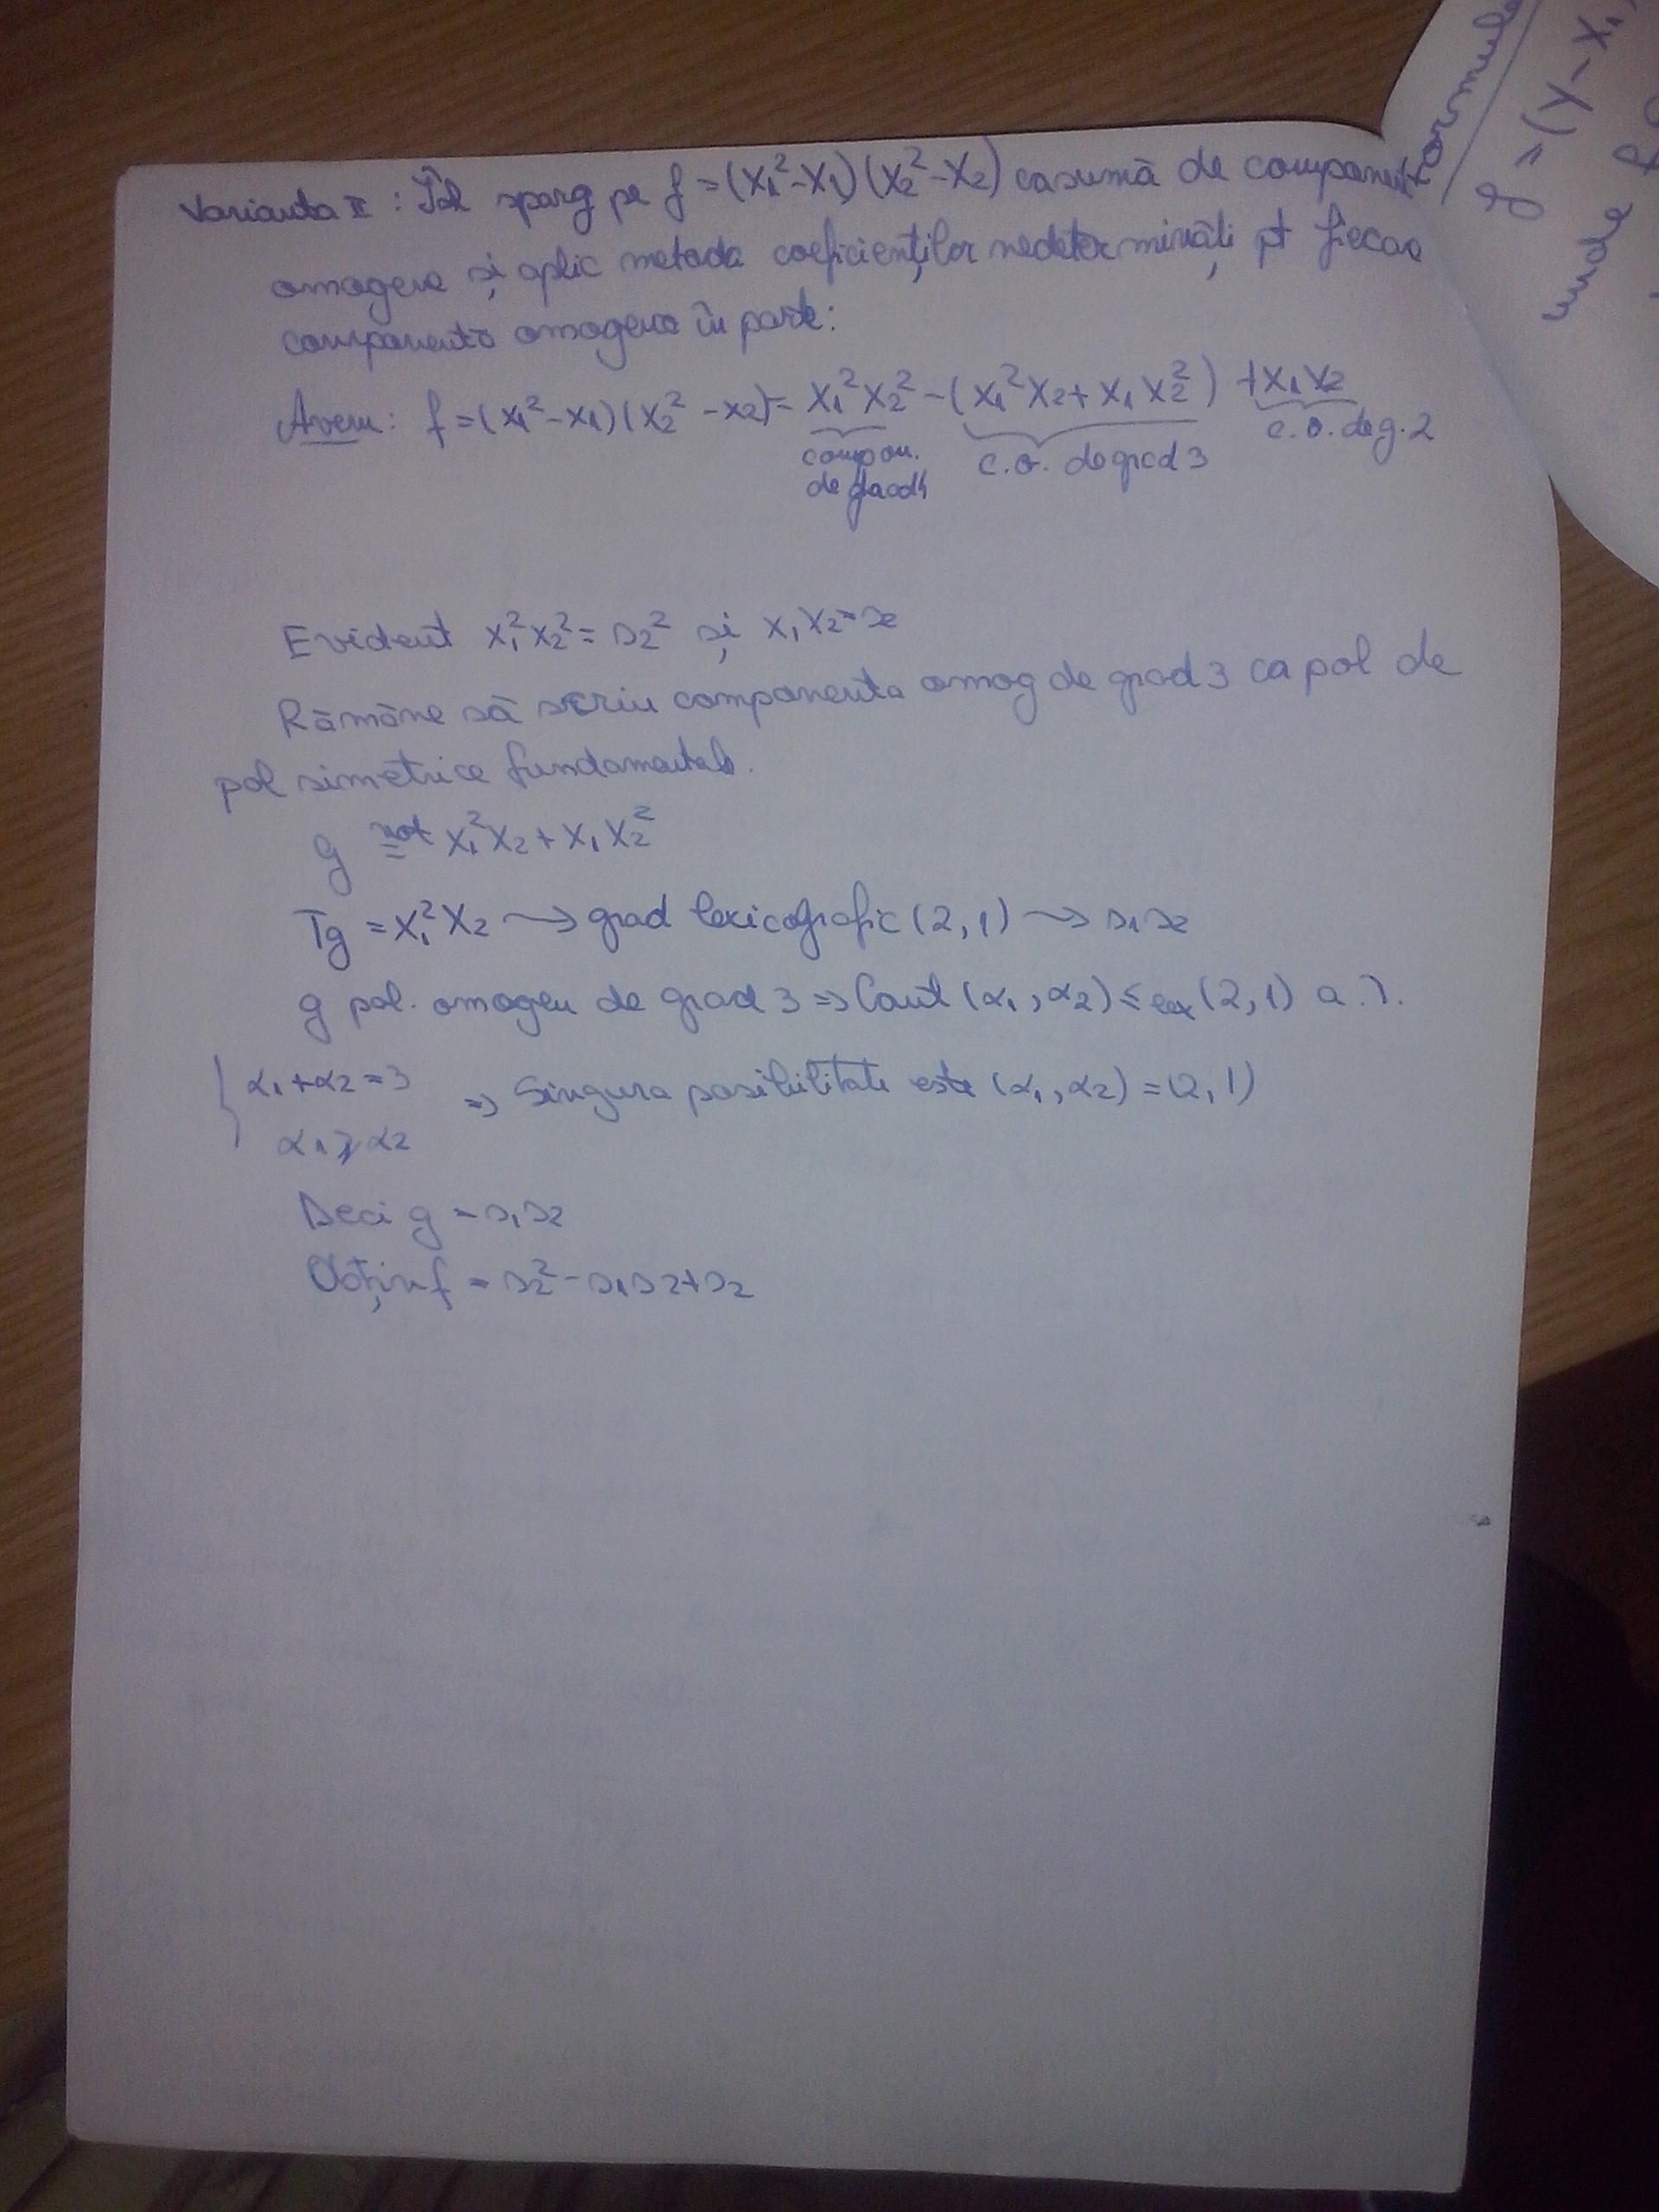 Varianta II : Îl sparg pe f = (X₁²-X₁)(X₂²-X₂) ca sumă de component
omogene și aplic metoda coeficienților nedeterminăți pt fiecare
componentă omogenă în parte:
Avem: f = (X₁²-X₁)(X₂²-X₂) = X₁²X₂² - (X₁²X₂ + X₁X₂²) + X₁X₂
compon. de grad 4
c.o. de grad 3
c.o. de g. 2
Evident X₁²X₂² = s₂² și X₁X₂ = s₂
Rămâne să scriu componenta omog de grad 3 ca pol de
pol simetrice fundamentale.
g not= X₁²X₂ + X₁X₂²
Tg = X₁²X₂ → grad lexicografic (2,1) → s₁s₂
g pol. omogen de grad 3 ⇒ Caut (α₁, α₂) ≤lex (2,1) a.î.
{ α₁+α₂=3
α₁≥α₂ ⇒ Singura posibilitate este (α₁, α₂) = (2,1)
Deci g = s₁s₂
Obțin f = s₂² - s₁s₂ + s₂
formule
g = (y - X₁
unde